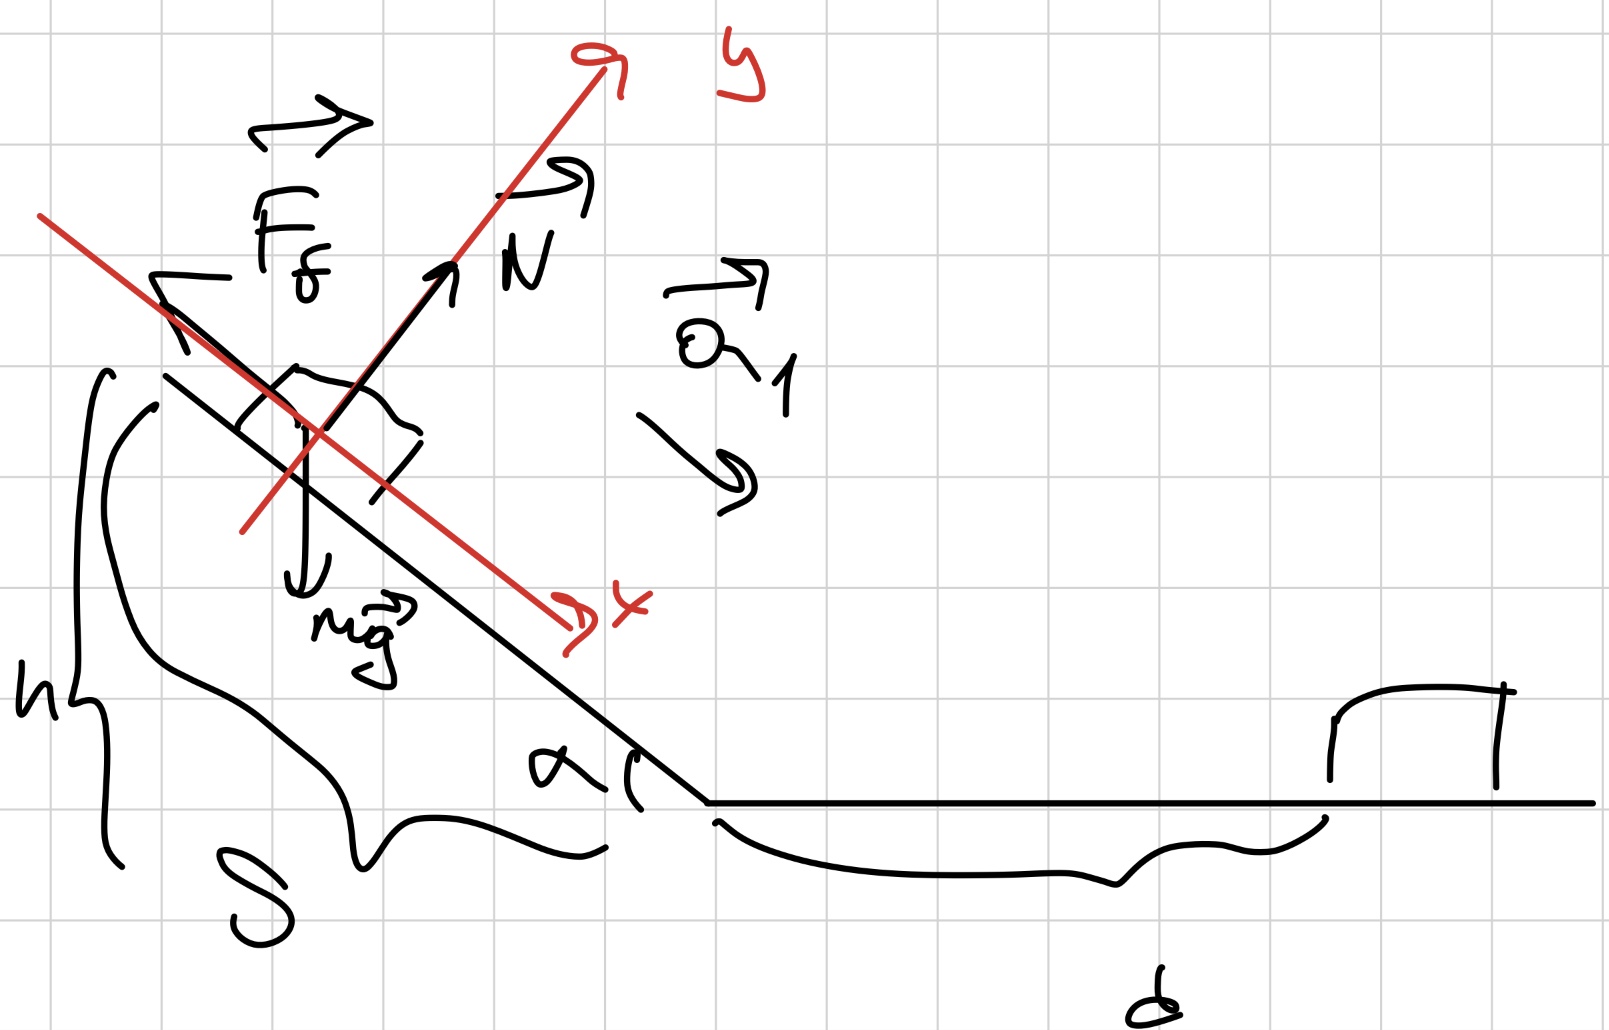 y
F_f
N
a_1
mg
x
h
α
S
d